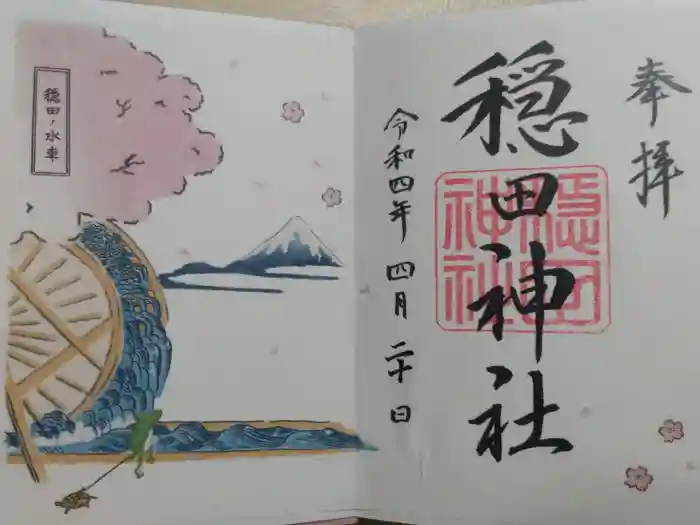 奉拝
穏田神社
穏田神社
令和四年 四月 二十日
穏田ノ水車